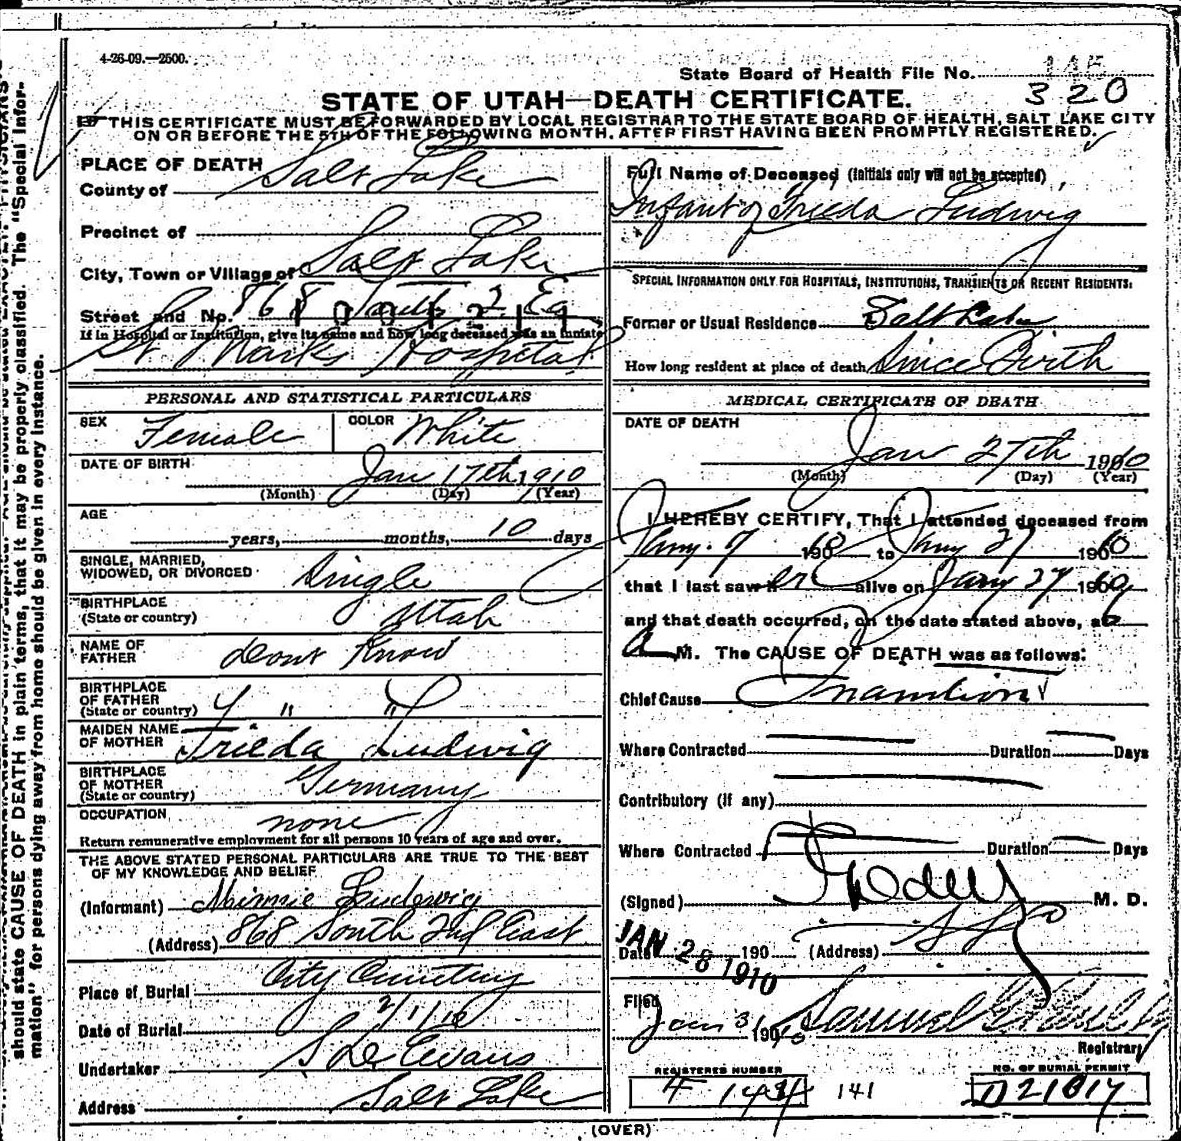 4-26-09.—2500.
State Board of Health File No. 145
320
STATE OF UTAH—DEATH CERTIFICATE.
THIS CERTIFICATE MUST BE FORWARDED BY LOCAL REGISTRAR TO THE STATE BOARD OF HEALTH, SALT LAKE CITY
ON OR BEFORE THE 5TH OF THE FOLLOWING MONTH, AFTER FIRST HAVING BEEN PROMPTLY REGISTERED.
PLACE OF DEATH
County of Salt Lake
Precinct of
City, Town or Village of Salt Lake
Street and No. 868 South 2 Ea
If in Hospital or Institution, give its name and how long deceased was an inmate
St Marks Hospital
PERSONAL AND STATISTICAL PARTICULARS
SEX Female COLOR White
DATE OF BIRTH Jan 17th 1910
(Month) (Day) (Year)
AGE
years, months, 10 days
SINGLE, MARRIED,
WIDOWED, OR DIVORCED Single
BIRTHPLACE
(State or country) Utah
NAME OF
FATHER dont Know
BIRTHPLACE
OF FATHER
(State or country) " "
MAIDEN NAME
OF MOTHER Frieda Ludwig
BIRTHPLACE
OF MOTHER
(State or country) Germany
OCCUPATION none
Return remunerative employment for all persons 10 years of age and over.
THE ABOVE STATED PERSONAL PARTICULARS ARE TRUE TO THE BEST
OF MY KNOWLEDGE AND BELIEF
(Informant) Minnie Ludwig
(Address) 868 South 2nd East
Place of Burial City Cemetery
Date of Burial 2/1/10
Undertaker S D Evans
Address Salt Lake
Full Name of Deceased (Initials only will not be accepted)
Infant of Frieda Ludwig
SPECIAL INFORMATION ONLY FOR HOSPITALS, INSTITUTIONS, TRANSIENTS OR RECENT RESIDENTS:
Former or Usual Residence Salt Lake
How long resident at place of death Since Birth
MEDICAL CERTIFICATE OF DEATH
DATE OF DEATH
Jan 27th 1910
(Month) (Day) (Year)
I HEREBY CERTIFY, That I attended deceased from
Jany. 17 1910 to Jany 27 1910
that I last saw her alive on Jany 27 1910
and that death occurred, on the date stated above, at 6
a M. The CAUSE OF DEATH was as follows:
Chief Cause Inanition
Where Contracted Duration Days
Contributory (if any)
Where Contracted Duration Days
(Signed) M. D.
Date JAN 28 1910 190 (Address) SLC
Filed Jan 31 1910 Samuel G
Registrar
REGISTERED NUMBER
F 144 141
NO. OF BURIAL PERMIT
D21817
(OVER)
should state CAUSE OF DEATH in plain terms, that it may be properly classified. The "Special Infor-
mation" for persons dying away from home should be given in every instance.